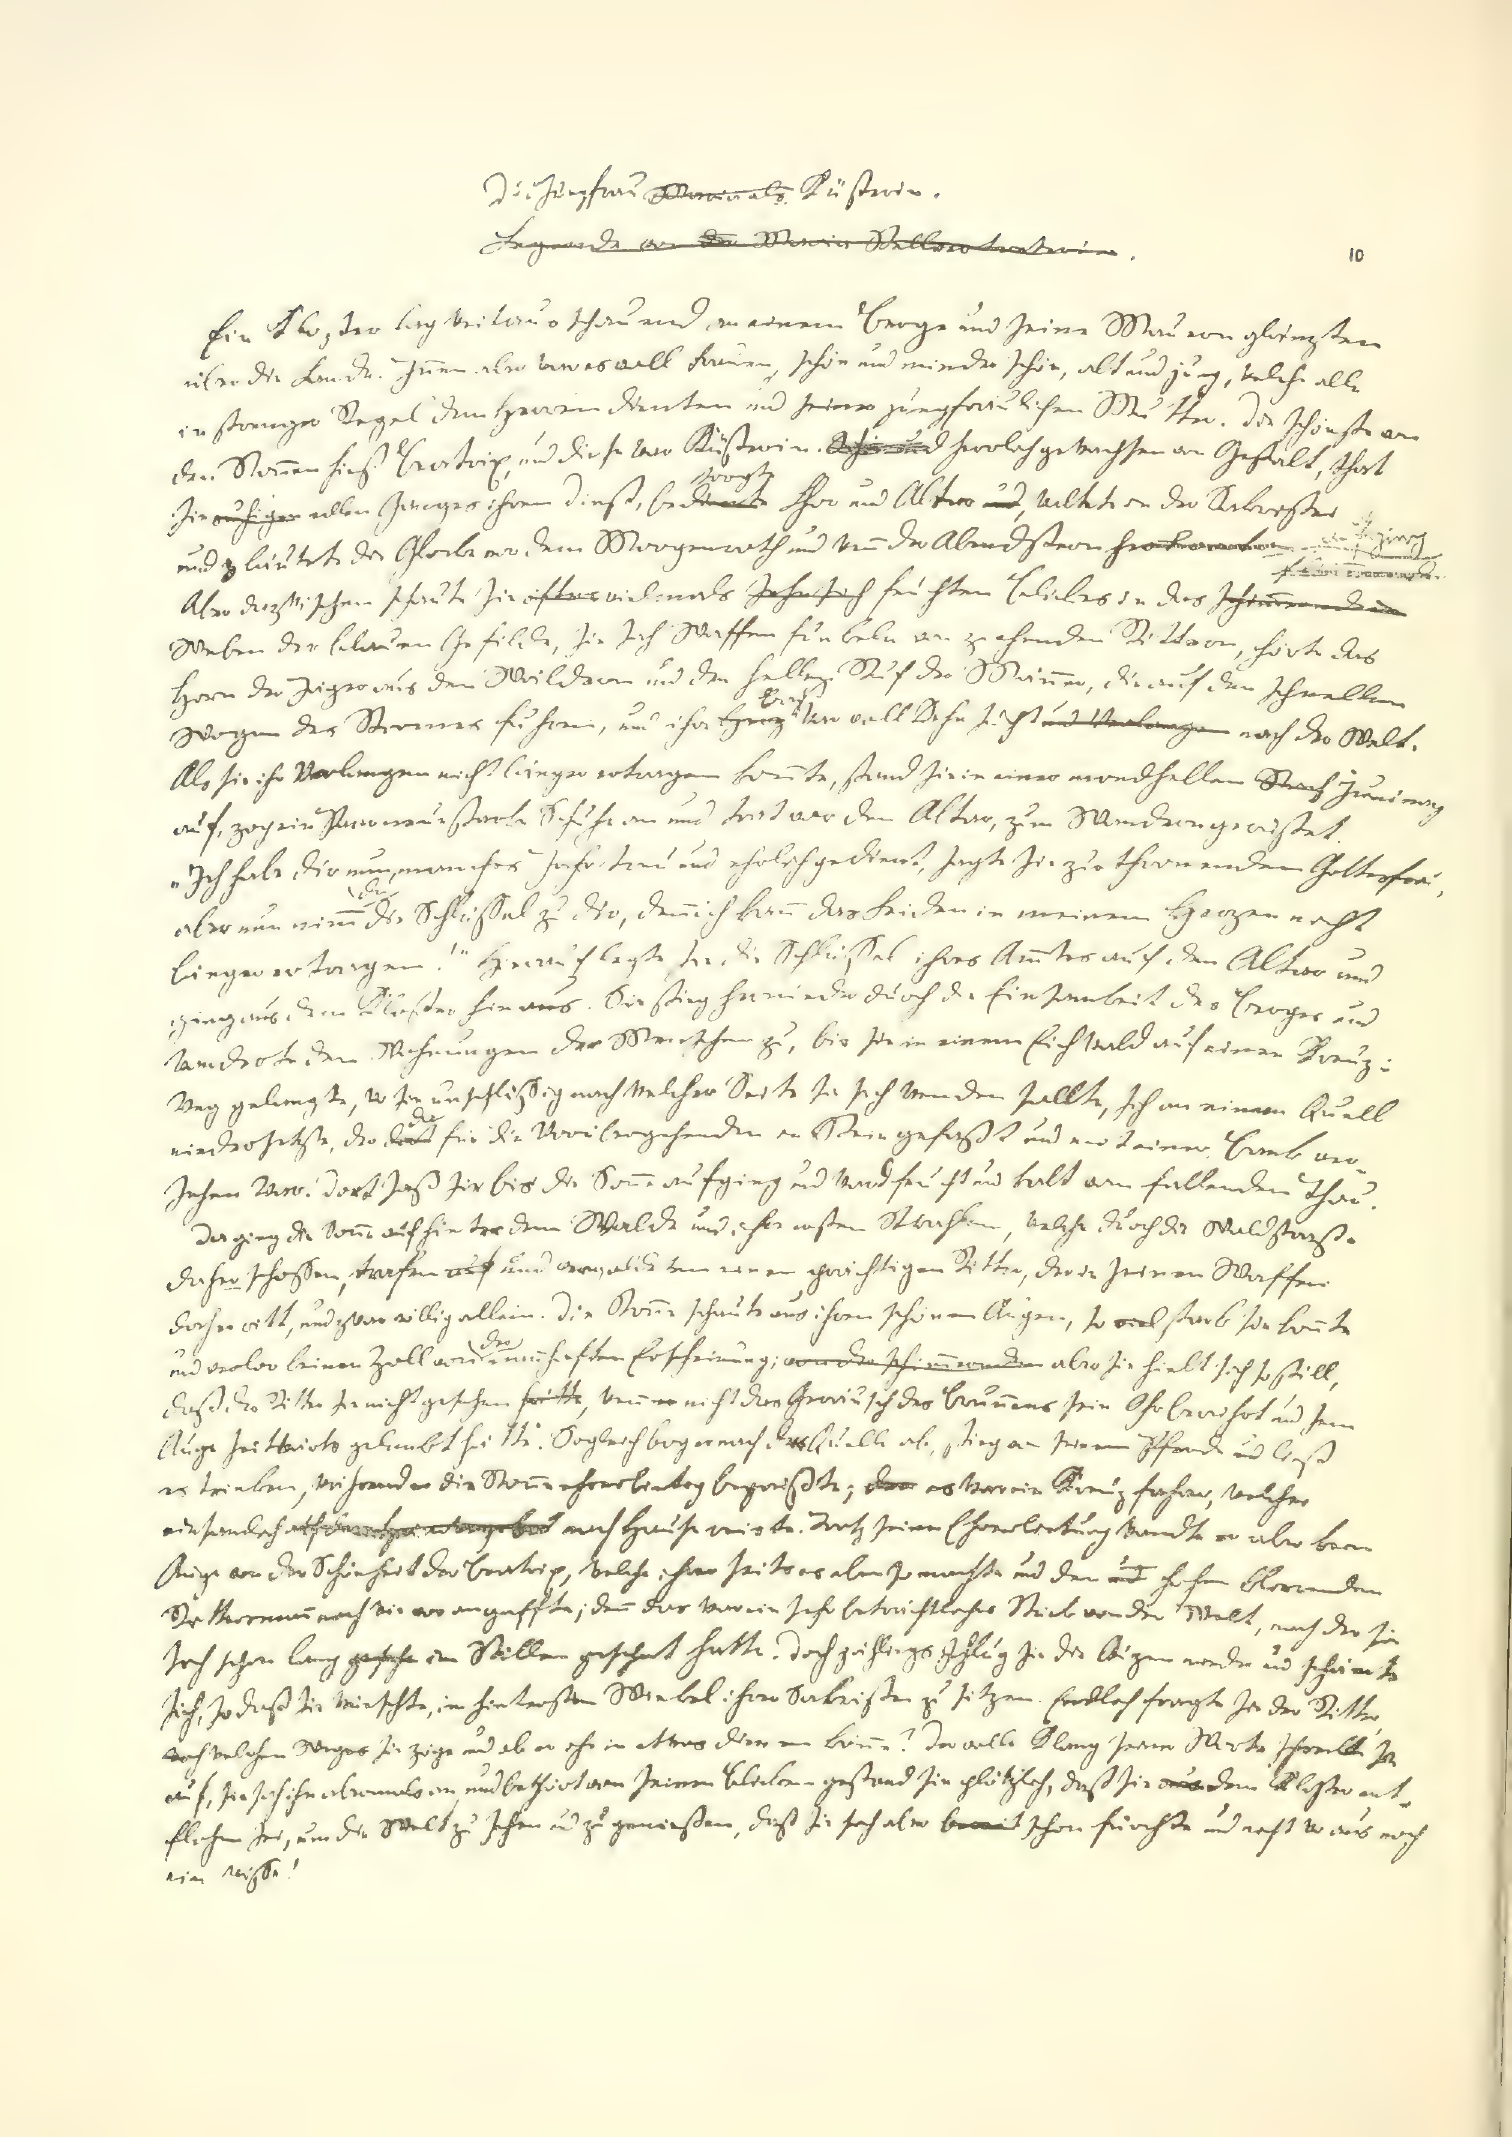 Die Jungfrau Maria als Küsterin.
Legende von der Maria Stellvertreterin.
10
Ein Kloster lag weitausschauend an einem Berge und seine Mauern glänzten
über die Lande. Innen aber war es voll Frauen, schön und minder schön, alt und jung, welche alle
in strenger Regel dem Herren dienten und seiner jungfräulichen Mutter. Die schönste von
den Nonnen hieß Beatrix, und diese war Küsterin. Schön und herrlich gewachsen von Gestalt, that
sorgte
sie ruhigen edlen Ganges ihren Dienst, bediente Chor und Altar und, waltete in der Sakristei
und läutete die Glocke vor dem Morgenroth und wenn der Abendstern
aufging
Aber dazwischen schaute sie öfters vielmals sehnsüch feuchten Blickes in das schimmernde
Weben der blauen Gefilde, sie sah Waffen funkeln von ziehenden Rittern, hörte das
Horn der Jäger aus den Wäldern und den hellen Ruf der Männer, die auf den schnellen
Brust
Wogen des Stromes fuhren, und ihr Herz war voll Sehnsucht und Verlangen nach der Welt.
Als sie ihr Verlangen nicht länger ertragen konnte, stand sie in einer mondhellen Nach Juninacht
auf, zog ein Paar neue starke Schuhe an und trat vor den Altar, zum Wandern gerüstet.
„Ich habe dir nun manches Jahr treu und ehrlich gedient, sagte sie zur thronenden Gottesfrau,
die
aber nun nimm die Schlüssel zu dir, denn ich kann das Leiden in meinem Herzen nicht
länger ertragen!" Hierauf legte sie die Schlüssel ihres Amtes auf den Altar und
ging aus dem Kloster hinaus. Sie stieg hernieder durch die Einsamkeit des Berges und
wanderte den Wohnungen der Menschen zu, bis sie in einem Eichwald auf einen Kreuz-
weg gelangte, wo sie unschlüssig nach welcher Seite sie sich wenden sollte, sich an einem Quell
der
niedersetzte, der dort für die Vorübergehenden in Stein gefaßt und mit einer Bank ver-
sehen war. Dort saß sie bis die Sonne aufging und ward feucht und kalt vom fallenden Thau.
Da ging die Sonne auf hinter dem Walde und ihre ersten Strahlen, welche durch die Waldstraße
daher schossen, trafen auf und vergoldeten einen prächtigen Ritter, der in seinen Waffen
daher ritt, und zwar völlig allein. Die Nonne schaute aus ihren schönen Augen, so viel stark sie konnte
der
und verlor keinen Zoll von mannhaften Erscheinung; von der schimmernden aber sie hielt sich so still,
daß der Ritter sie nicht gesehen hätte, wenn er nicht das Geräusch des Brunnens sein Ohr berührt und sein
Auge seitwärts gelenkt hätte. Sogleich bog er nach der Quelle ab, stieg von seinem Pferde und ließ
es trinken, während er die Nonne ehrerbietig begrüßte; der es war ein Kreuzfahrer, welcher
einsamlich nach Hause reiste. Trotz seiner Ehrerbietung wandte er aber kein
Auge von der Schönheit der Beatrix, welche ihrerseits es eben so machte und den und hohen klirrenden
Rittersmann nach wie vor angaffte; denn das war ein sehr beträchtliches Stück von der Welt, nach der sie
sich schon lang gesehn im Stillen gesehnt hatte. Doch jählings schlug sie die Augen nieder und schämte
sich, so daß sie wünschte, im hintersten Winkel ihrer Sakristei zu sitzen. Endlich fragte sie der Ritter
nach welchen Weges sie zöge und ob er ihr in etwas dienen könne? Der volle Klang seiner Worte schreckte sie
auf, sie sah ihn abermals an, und bethört von seinen Blicken gestand sie plötzlich, daß sie aus dem Kloster ent-
flohen sei, um die Welt zu sehen und zu genießen, daß sie sich aber bereit schon fürchte und nicht wo aus noch
ein wisse!